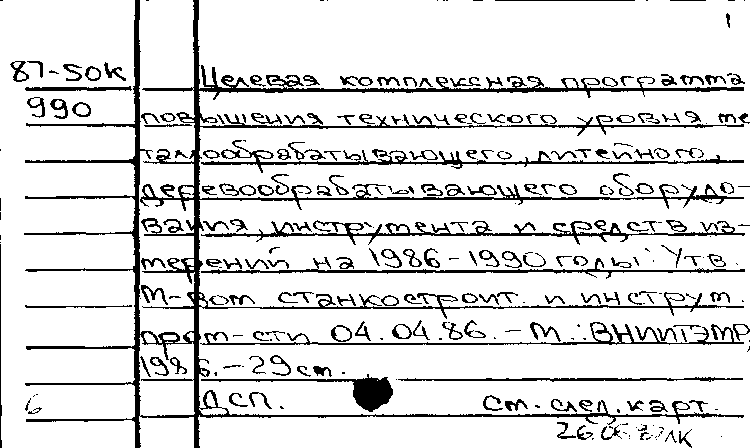 1
87-50К Целевая комплексная программа
990 повышения технического уровня ме
таллообрабатывающего, литейного,
деревообрабатывающего оборудо-
вания, инструмента и средств из-
мерений на 1986-1990 годы: Утв.
М-вом станкостроит. и инструм.
пром-сти 04.04.86. - М.: ВНИИТЭМР,
1986. - 29 см.
6 ДСП. См. след. карт.